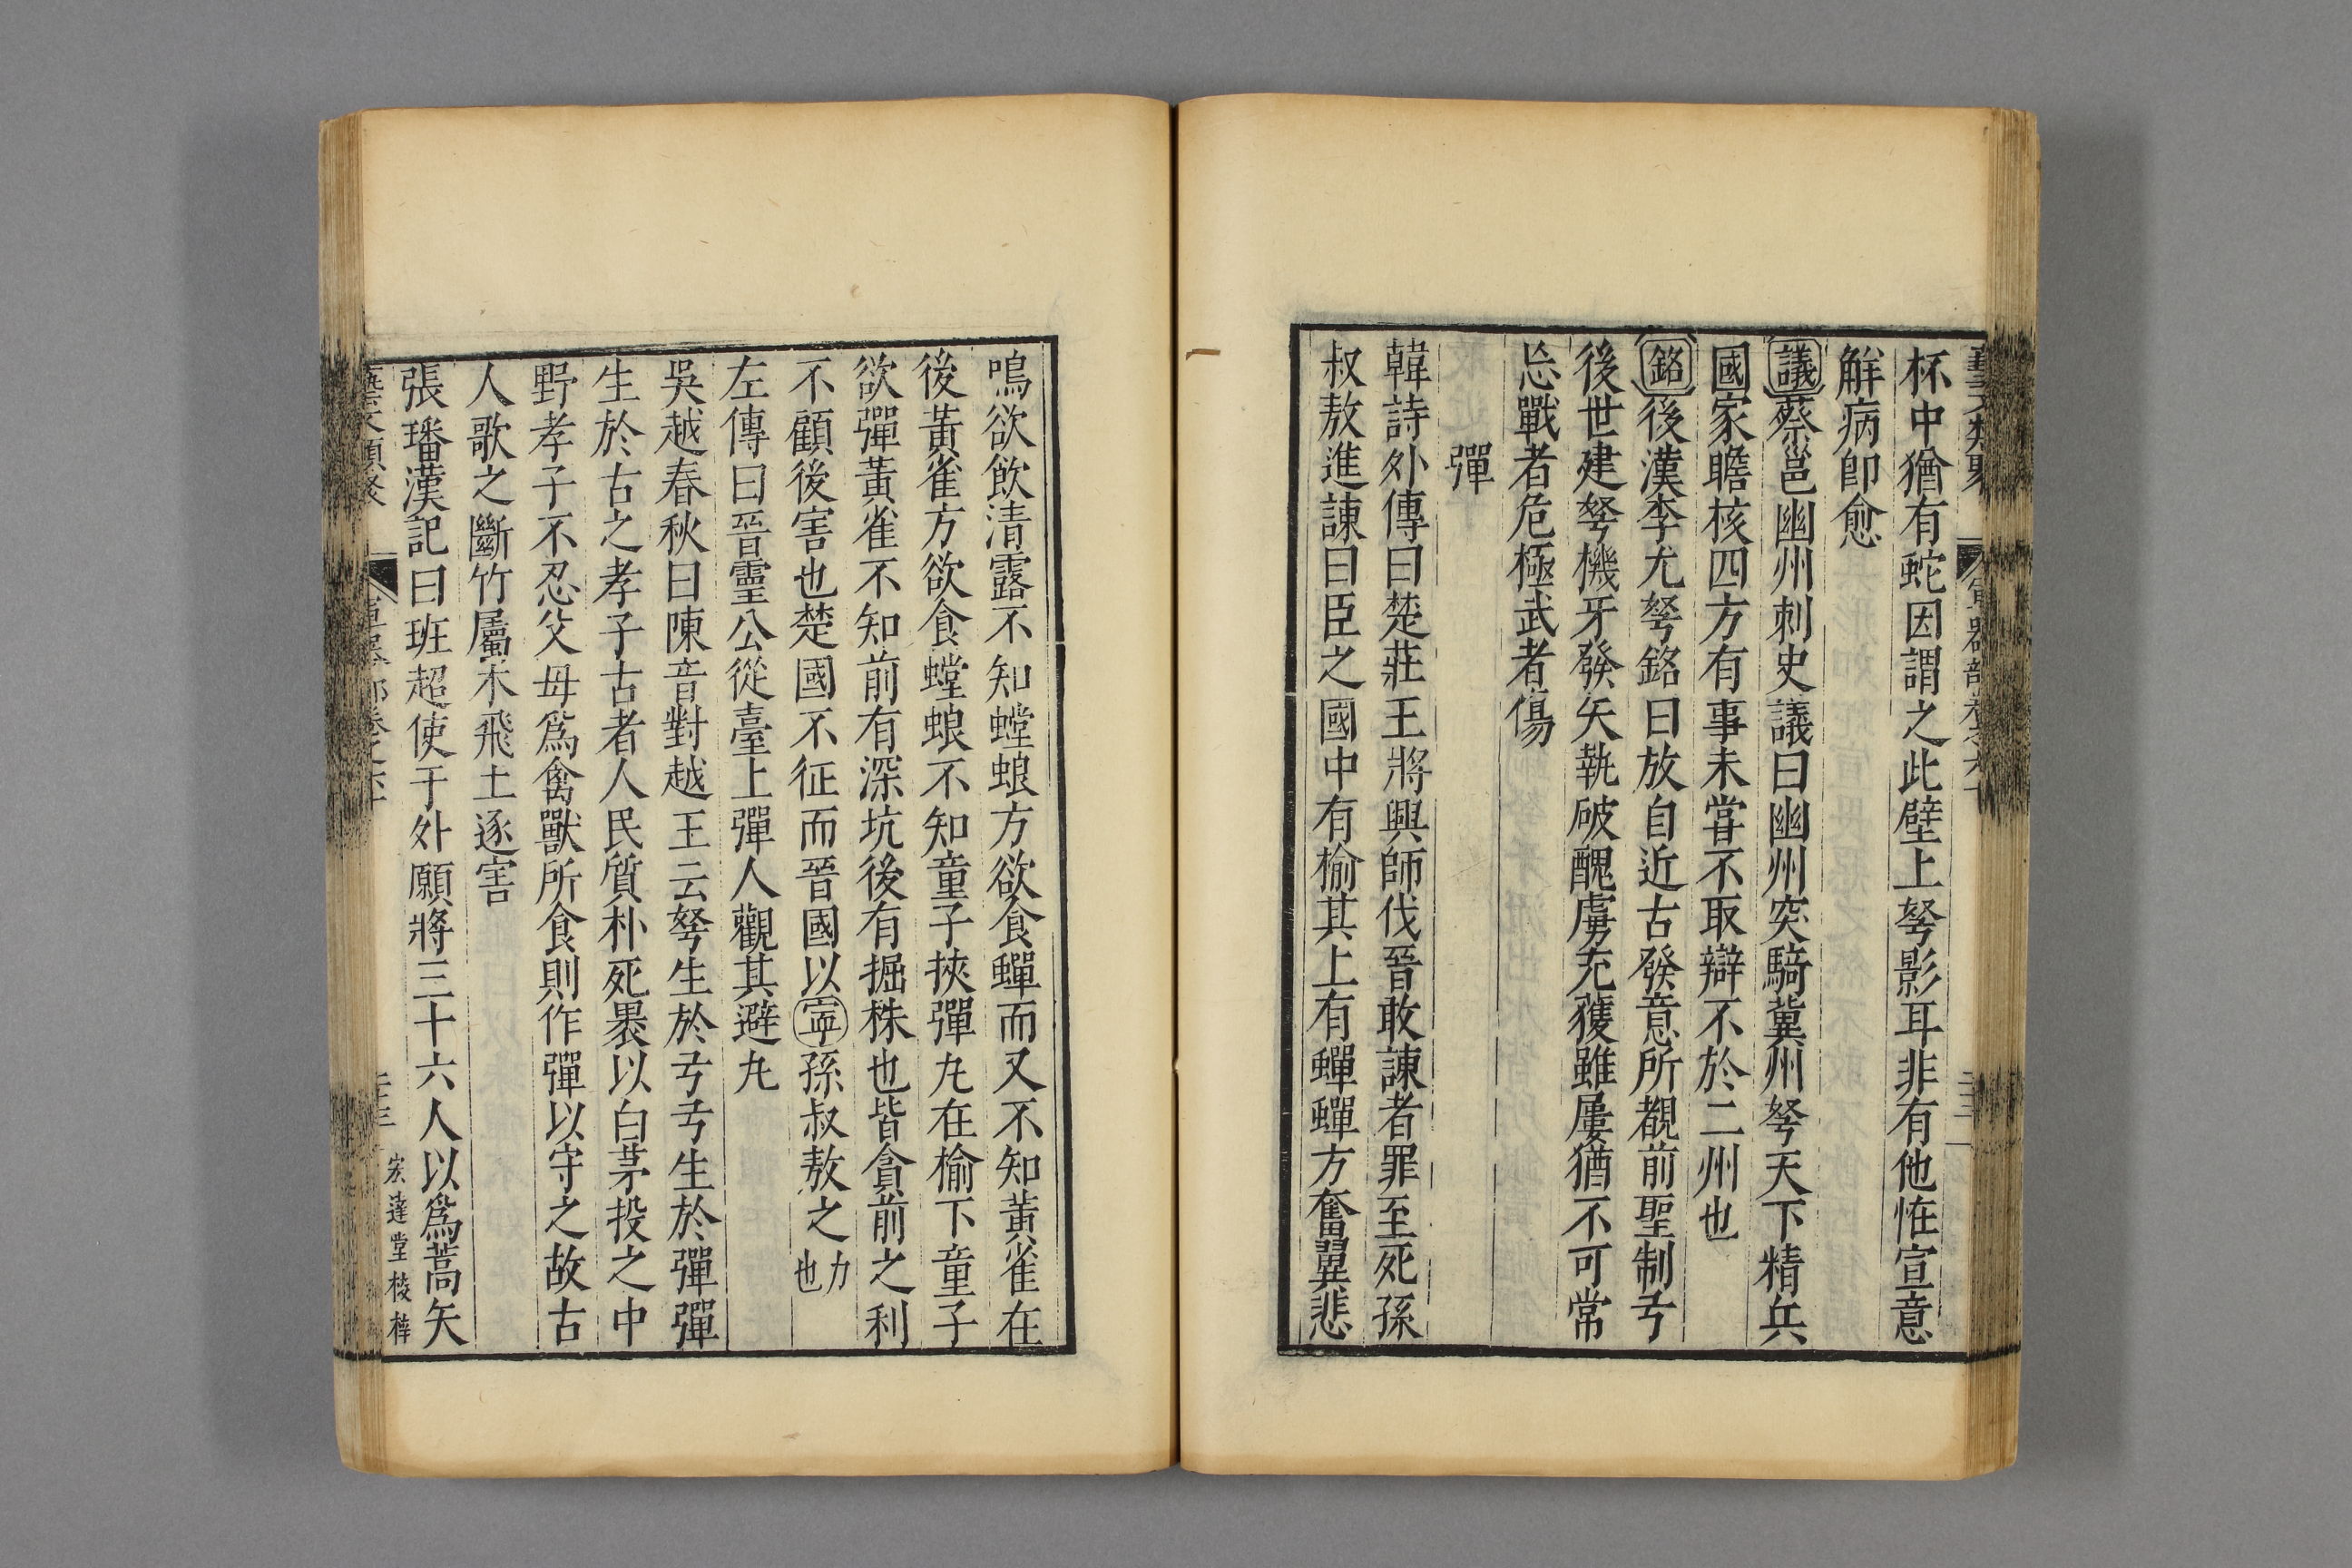 杯中猶有蛇因謂之此壁上弩影耳非有他恠宣意
解病卽愈
議蔡邕幽州刺史議曰幽州突騎冀州弩天下精兵
國家瞻核四方有事未甞不取辯不於二州也
銘後漢李尤弩銘曰放自近古發意所覩前聖制弓
後世建弩機牙發矢執破醜虜充獲雖屢猶不可常
忘戰者危極武者傷
彈
韓詩外傳曰楚莊王將興師伐晉敢諫者罪至死孫
叔敖進諫曰臣之國中有榆其上有蟬蟬方奮翼悲
鳴欲飲清露不知螳蜋方欲食蟬而又不知黃雀在
後黃雀方欲食螳蜋不知童子挾彈丸在榆下童子
欲彈黃雀不知前有深坑後有掘株也皆貪前之利
不顧後害也楚國不征而晉國以寧孫叔敖之力也
左傳曰晉靈公從臺上彈人觀其避丸
吳越春秋曰陳音對越王云弩生於弓弓生於彈彈
生於古之孝子古者人民質朴死褁以白茅投之中
野孝子不忍父母爲禽獸所食則作彈以守之故古
人歌之斷竹屬木飛土逐害
張璠漢記曰班超使于外願將三十六人以爲蒿矢
宏達堂棱梓